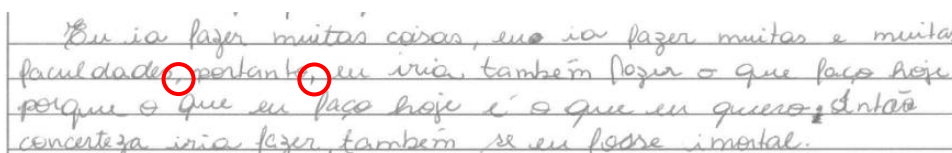 Eu ia fazer muitas coisas, eu ia fazer muitas e muitas
faculdades, portanto, eu iria também fazer o que faço hoje
porque o que eu faço hoje é o que eu quero. Então
concerteza iria fazer também se eu fosse imortal.